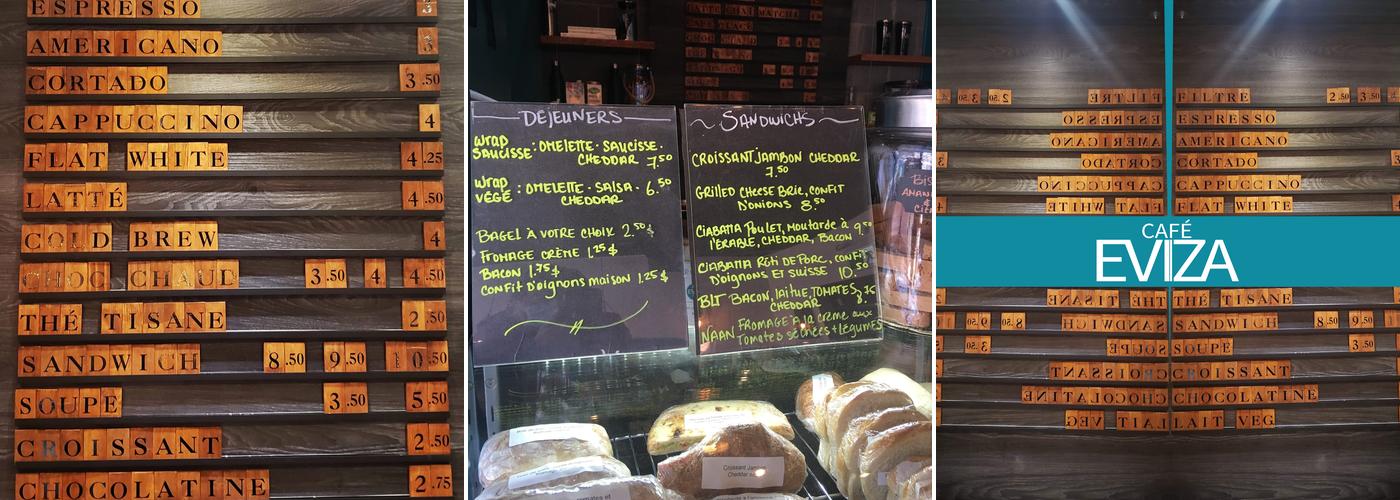 ESPRESSO 3
AMERICANO 3
CORTADO 3.50
CAPPUCCINO 4
FLAT WHITE 4.25
LATTÉ 4.50
COLD BREW 4
CHOC CHAUD 3.50 4 4.50
THÉ TISANE 2.50
SANDWICH 8.50 9.50 10.50
SOUPE 3.50 5.50
CROISSANT 2.50
CHOCOLATINE 2.75
DÉJEUNERS
Wrap Saucisse : OMELETTE · SAUCISSE ·
CHEDDAR 7.50
Wrap VÉGÉ : OMELETTE · SALSA · 6.50
CHEDDAR
BAGEL À VOTRE CHOIX 2.50$
FROMAGE CRÈME 1.25$
BACON 1.75$
CONFIT D'OIGNONS MAISON 1.25$
SANDWICHS
CROISSANT JAMBON CHEDDAR
7.50
GRILLED CHEESE BRIE, CONFIT
D'ONIONS 8.50
CIABATTA POULET, MOUTARDE À 9.50
L'ÉRABLE, CHEDDAR, BACON
CIABATTA RÔTI DE PORC, CONFIT
D'OIGNONS ET SUISSE 10.50
BLT BACON, LAITUE, TOMATES, 8.75
CHEDDAR
NAAN FROMAGE À LA CRÈME AUX
TOMATES SÉCHÉES + LÉGUMES
Croissant Jambon
Cheddar
FILTRE 2.50 3.50
ESPRESSO
AMERICANO
CORTADO
CAPPUCCINO
FLAT WHITE
CAFÉ
EVIZA
THÉ TISANE
SANDWICH 8.50 9.50
SOUPE 3.50
CROISSANT
CHOCOLATINE
LAIT VEG